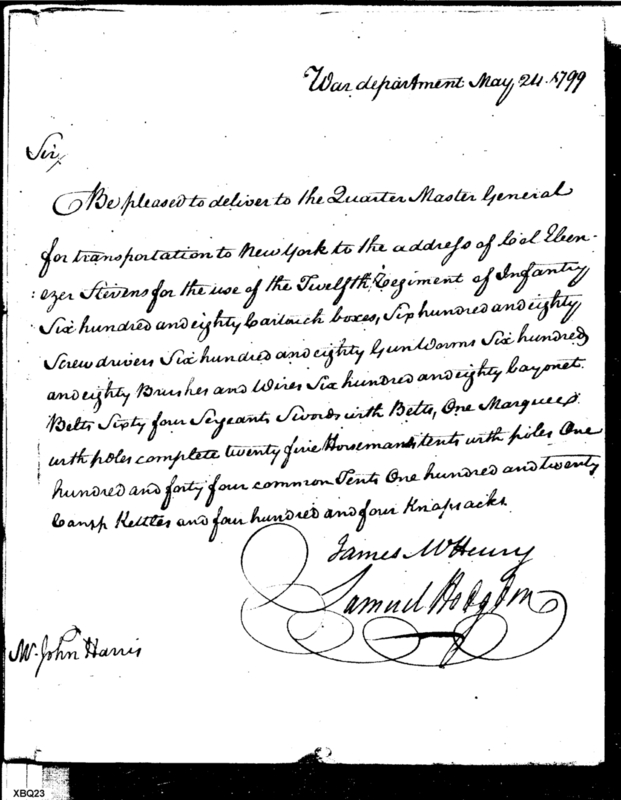 War department May, 24. 1799
Sir,
Be pleased to deliver to the Quarter Master General
for transportation to New York to the address of Col Eben-
:ezer Stevens for the use of the Twelfth Regiment of Infantry
Six hundred and eighty Cartouch boxes, Six hundred and eighty
Screw drivers Six hundred and eighty Gun Worms Six hundred
and eighty Brushes and Wires Six hundred and eighty bayonet.
Belts Sixty four Sergeants Swords with Belts, One Marquee
with poles complete twenty five Horsemans tents with poles One
hundred and forty four common Tents One hundred and twenty
Camp Kettles and four hundred and four Knapsacks.
James McHenry
Samuel Hodgdon
Mr. John Harris
XBQ23